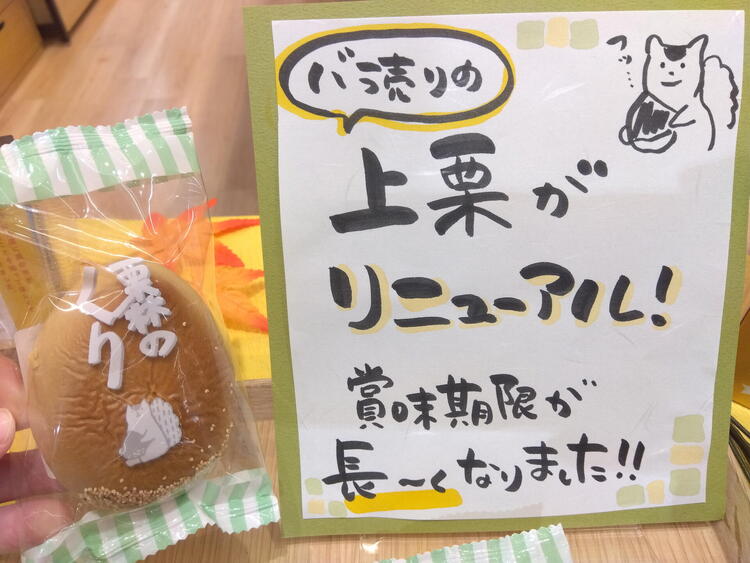 バラ売りの
上栗が
リニューアル!
賞味期限が
長〜くなりました!!
フッ…
栗林の
くり